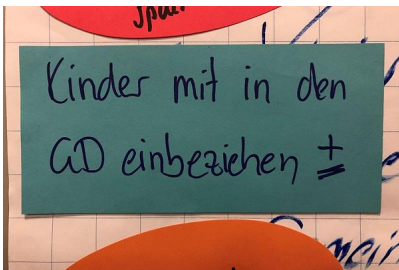 Kinder mit in den
GD einbeziehen ±